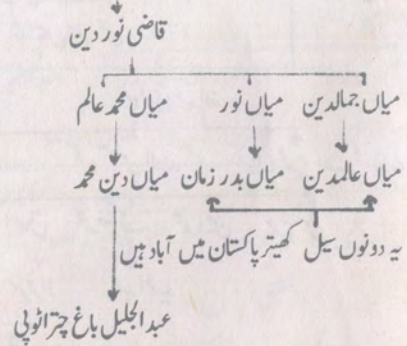 قاضی نور دین
میاں جمالدین میاں نور میاں محمد عالم
میاں عالمدین میاں بدر زمان میاں دین محمد
یہ دونوں سیل کھیتر پاکستان میں آباد ہیں
عبد الجلیل باغ چتراٹوپی